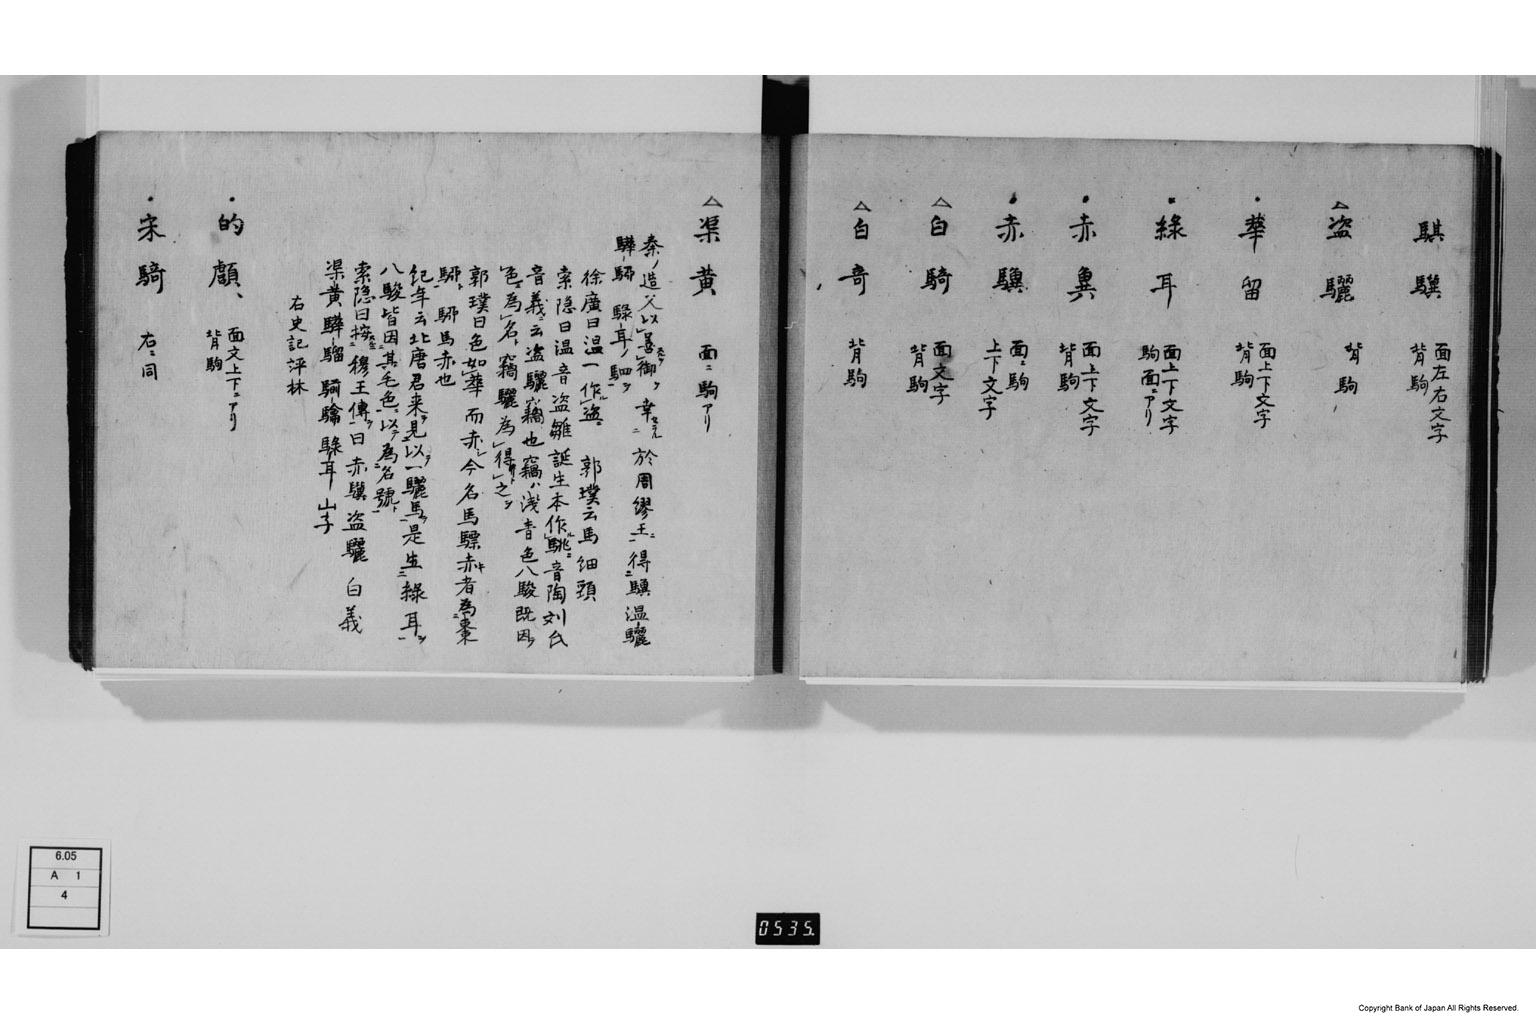 騏驥　面左右文字
背駒
△盗驪　背駒
・華留　面上下文字
背駒
・緑耳　面上下文字
駒面ニアリ
・赤兾　面上下文字
背駒
・赤驥　面ニ駒
上下文字
△白騎　面文字
背駒
△白奇　背駒
△渠黄　面ニ駒アリ
秦ノ造父以善御幸於周繆王得驥温驪
驊騮騄耳ノ駟
徐廣曰温一作盗　郭璞云馬細頸
索隐曰温音盗雛誕生本作駣音陶刘氏
音義云盗驪竊也竊ハ浅青色八駿既因
色為名竊驪為得之
郭璞曰色如華而赤今名馬驃赤者為棗
騮騮馬赤也
纪年云北唐君来見以一驪馬是生緑耳
八駿皆因其毛色以為名號
索隐曰按穆王傳曰赤驥盗驪白義
渠黄驊騮騧騟騄耳山子
右史記評林
・的顱、面文上下ニアリ
背駒
・宋騎　右ニ同
6.05
A 1
4
0535.
Copyright Bank of Japan All Rights Reserved.